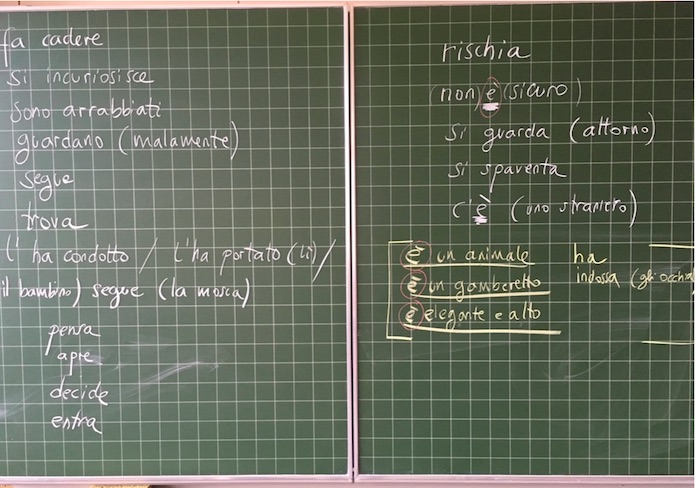 fa cadere
si incuriosisce
sono arrabbiati
guardano (malamente)
segue
trova
l'ha condotto / l'ha portato (lì) /
il bambino) segue (la mosca)
pensa
apre
decide
entra
rischia
(non) è (sicuro)
si guarda (attorno)
si spaventa
c'è (uno straniero)
è un animale
è un gamberetto
è elegante e alto
ha
indossa (gli occhia